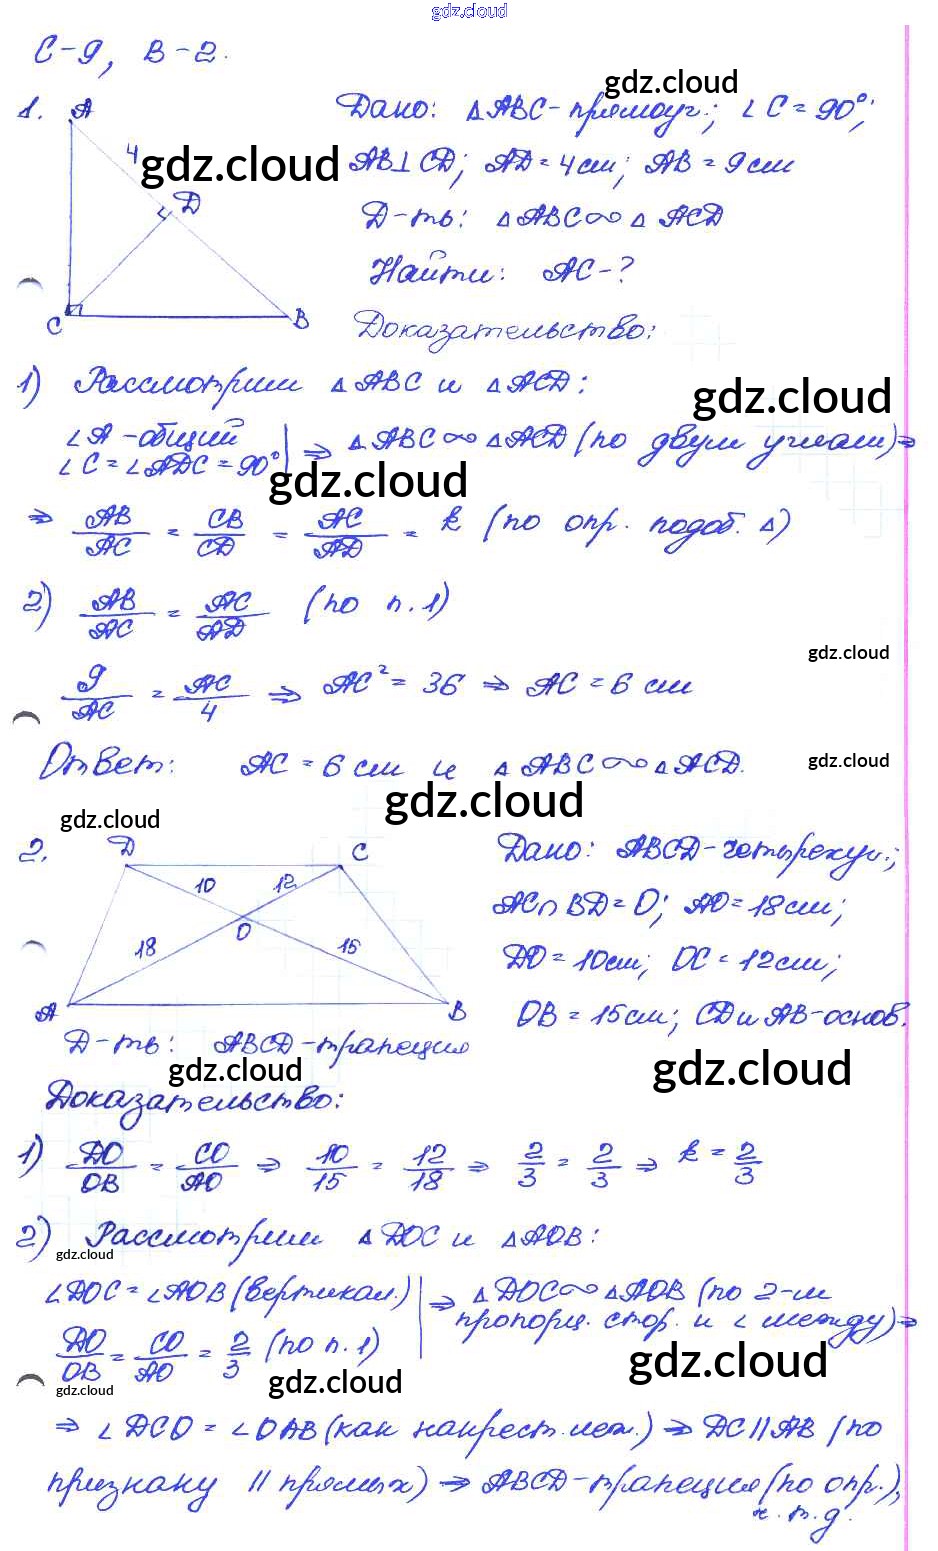 gdz.cloud
С-9, В-2.
gdz.cloud
1. A
Дано: △ABC-прямоуг.; ∠C=90°;
4
gdz.cloud
AB⊥CD; AD=4см; AB=9см
D
Д-ть: △ABC∾△ACD
Найти: AC-?
C B
Доказательство:
1) Рассмотрим △ABC и △ACD:
gdz.cloud
∠A-общий
∠C=∠ADC=90° | ⇒ △ABC∾△ACD (по двум углам)⇒
gdz.cloud
⇒ AB/AC = CB/CD = AC/AD = k (по опр. подоб. △)
2) AB/AC = AC/AD (по п.1)
gdz.cloud
9/AC = AC/4 ⇒ AC² = 36 ⇒ AC = 6 см
Ответ: AC = 6 см и △ABC∾△ACD.
gdz.cloud
gdz.cloud
gdz.cloud
2. D C
Дано: ABCD-четырехуг.;
10 12
AC∩BD=O; AO=18см;
O
18 15
DO=10см; OC=12см;
A B
OB=15см; CD и AB-основ.
Д-ть: ABCD-трапеция
gdz.cloud
gdz.cloud
Доказательство:
1) DO/OB = CO/AO ⇒ 10/15 = 12/18 ⇒ 2/3 = 2/3 ⇒ k = 2/3
2) Рассмотрим △DOC и △AOB:
gdz.cloud
∠DOC=∠AOB (вертикал.) | ⇒ △DOC∾△AOB (по 2-м
пропорц. стор. и ∠ между)⇒
DO/OB = CO/AO = 2/3 (по п.1)
gdz.cloud
gdz.cloud
gdz.cloud
⇒ ∠DCO = ∠OAB (как накрест. леж.) ⇒ DC||AB (по
признаку || прямых) ⇒ ABCD-трапеция (по опр.),
ч.т.д.